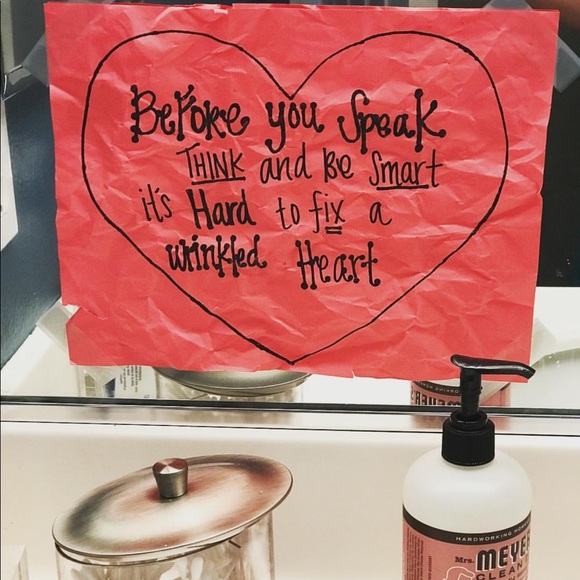 Before you Speak
THINK and Be Smart
it's Hard to fix a
wrinkled Heart
HARDWORKING
Mrs.
MEYE
CLEAN